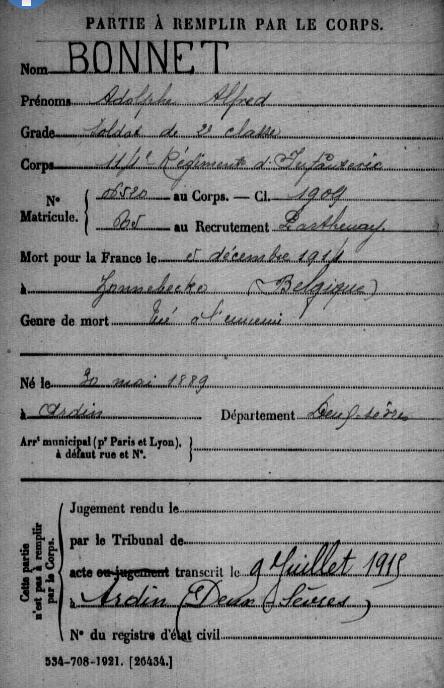 PARTIE À REMPLIR PAR LE CORPS.
Nom BONNET
Prénoms Adolphe Alfred
Grade Soldat de 2e classe
Corps 114e Régiment d'Infanterie
N° Matricule. { 06520 au Corps. — Cl. 1909
au Recrutement Parthenay
Mort pour la France le 5 décembre 1914
à Zonnebecke (Belgique)
Genre de mort Tué à l'ennemi
Né le 30 mai 1889
à Ardin Département Deux-Sèvres
Arrt municipal (pr Paris et Lyon), à défaut rue et N°. }
Cette partie n'est pas à remplir par le Corps.
Jugement rendu le
par le Tribunal de
acte ou jugement transcrit le 9 Juillet 1915
à Ardin (Deux-Sèvres)
N° du registre d'état civil
534-708-1921. [26434.]